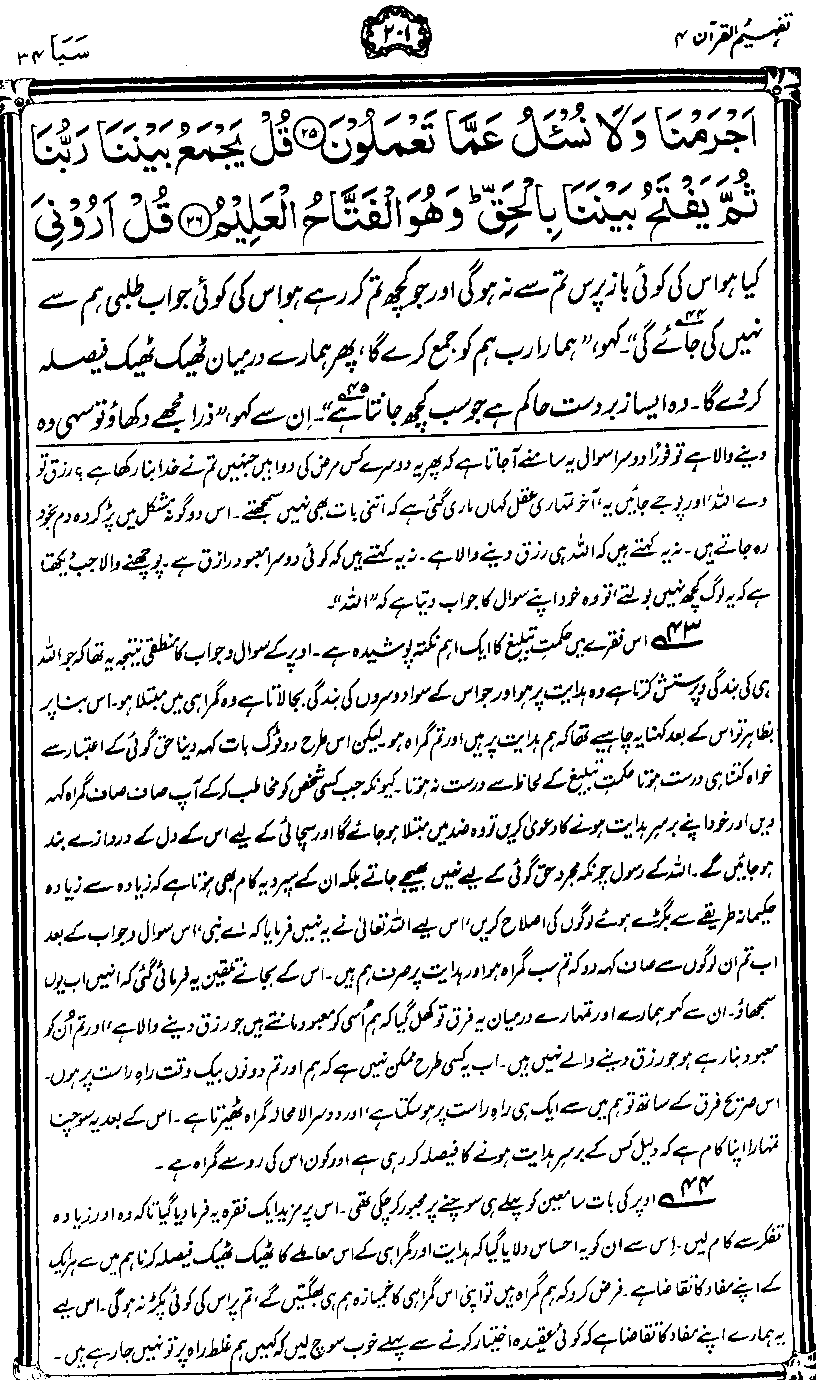 تفہیم القرآن ۴
۲۰۱
سَبَا ۳۴
اَجْرَمْنَا وَلَا نُسْـَٔلُ عَمَّا تَعْمَلُوْنَ ۲۵ قُلْ يَجْمَعُ بَيْنَنَا رَبُّنَا
ثُمَّ يَفْتَحُ بَيْنَنَا بِالْحَقِّ ؕ وَهُوَ الْفَتَّاحُ الْعَلِيْمُ ۲۶ قُلْ اَرُوْنِيَ
کیا ہو اس کی کوئی باز پرس تم سے نہ ہوگی اور جو کچھ تم کر رہے ہو اس کی کوئی جواب طلبی ہم سے
نہیں کی جائے گی۴۴“۔ کہو، ”ہمارا رب ہم کو جمع کرے گا، پھر ہمارے درمیان ٹھیک ٹھیک فیصلہ
کر دے گا۔ وہ ایسا زبردست حاکم ہے جو سب کچھ جانتا ہے۴۵“۔ اِن سے کہو، ”ذرا مجھے دکھاؤ تو سہی وہ
دینے والا ہے تو فوراً دوسرا سوال یہ سامنے آجاتا ہے کہ پھر یہ دوسرے کس مرض کی دوا ہیں جنہیں تم نے خدا بنا رکھا ہے؟ رزق تو
دے اللہ، اور پوجے جائیں یہ، آخر تمہاری عقل کہاں ماری گئی ہے کہ اتنی بات بھی نہیں سمجھتے۔ اس دوگونہ مشکل میں پڑ کر وہ دم بخود
رہ جاتے ہیں۔ نہ یہ کہتے ہیں کہ اللہ ہی رزق دینے والا ہے۔ نہ یہ کہتے ہیں کہ کوئی دوسرا معبود رازق ہے۔ پوچھنے والا جب دیکھتا
ہے کہ یہ لوگ کچھ نہیں بولتے، تو وہ خود اپنے سوال کا جواب دیتا ہے کہ ”اللہ“۔
۴۳ اس فقرے میں حکمتِ تبلیغ کا ایک اہم نکتہ پوشیدہ ہے۔ اوپر کے سوال و جواب کا منطقی نتیجہ یہ تھا کہ جو اللہ
ہی کی بندگی و پرستش کرتا ہے وہ ہدایت پر ہو اور جو اس کے سوا دوسروں کی بندگی بجا لاتا ہے وہ گمراہی میں مبتلا ہو۔ اس بنا پر
بظاہر تو اس کے بعد کہنا یہ چاہیے تھا کہ ہم ہدایت پر ہیں اور تم گمراہ ہو۔ لیکن اس طرح دو ٹوک بات کہہ دینا حق گوئی کے اعتبار سے
خواہ کتنا ہی درست ہوتا حکمتِ تبلیغ کے لحاظ سے درست نہ ہوتا۔ کیونکہ جب کسی شخص کو مخاطب کر کے آپ صاف صاف گمراہ کہہ
دیں اور خود اپنے برسرِ ہدایت ہونے کا دعویٰ کریں تو وہ ضد میں مبتلا ہو جائے گا اور سچائی کے لیے اس کے دل کے دروازے بند
ہو جائیں گے۔ اللہ کے رسول چونکہ مجرد حق گوئی کے لیے نہیں بھیجے جاتے بلکہ ان کے سپرد یہ کام بھی ہوتا ہے کہ زیادہ سے زیادہ
حکیمانہ طریقے سے بگڑے ہوئے لوگوں کی اصلاح کریں، اس لیے اللہ تعالیٰ نے یہ نہیں فرمایا کہ اے نبی، اس سوال و جواب کے بعد
اب تم ان لوگوں سے صاف کہہ دو کہ تم سب گمراہ ہو اور ہدایت پر صرف ہم ہیں۔ اس کے بجائے تلقین یہ فرمائی گئی کہ انہیں اب یوں
سمجھاؤ۔ ان سے کہو ہمارے اور تمہارے درمیان یہ فرق تو کھل گیا کہ ہم اُسی کو معبود مانتے ہیں جو رزق دینے والا ہے، اور تم اُن کو
معبود بنا رہے ہو جو رزق دینے والے نہیں ہیں۔ اب یہ کسی طرح ممکن نہیں ہے کہ ہم اور تم دونوں بیک وقت راہِ راست پر ہوں۔
اس صریح فرق کے ساتھ تو ہم میں سے ایک ہی راہِ راست پر ہو سکتا ہے، اور دوسرا لامحالہ گمراہ ٹھیرتا ہے۔ اس کے بعد یہ سوچنا
تمہارا اپنا کام ہے کہ دلیل کس کے برسرِ ہدایت ہونے کا فیصلہ کر رہی ہے اور کون اس کی رو سے گمراہ ہے۔
۴۴ اوپر کی بات سامعین کو پہلے ہی سوچنے پر مجبور کر چکی تھی۔ اس پر مزید ایک فقرہ یہ فرما دیا گیا تاکہ وہ اور زیادہ
تفکر سے کام لیں۔ اِس سے ان کو یہ احساس دلایا گیا کہ ہدایت اور گمراہی کے اس معاملے کا ٹھیک ٹھیک فیصلہ کرنا ہم میں سے ہر ایک
کے اپنے مفاد کا تقاضا ہے۔ فرض کرو کہ ہم گمراہ ہیں تو اپنی اس گمراہی کا خمیازہ ہم ہی بھگتیں گے، تم پر اس کی کوئی پکڑ نہ ہوگی۔ اس لیے
یہ ہمارے اپنے مفاد کا تقاضا ہے کہ کوئی عقیدہ اختیار کرنے سے پہلے خوب سوچ لیں کہ کہیں ہم غلط راہ پر تو نہیں جا رہے ہیں۔